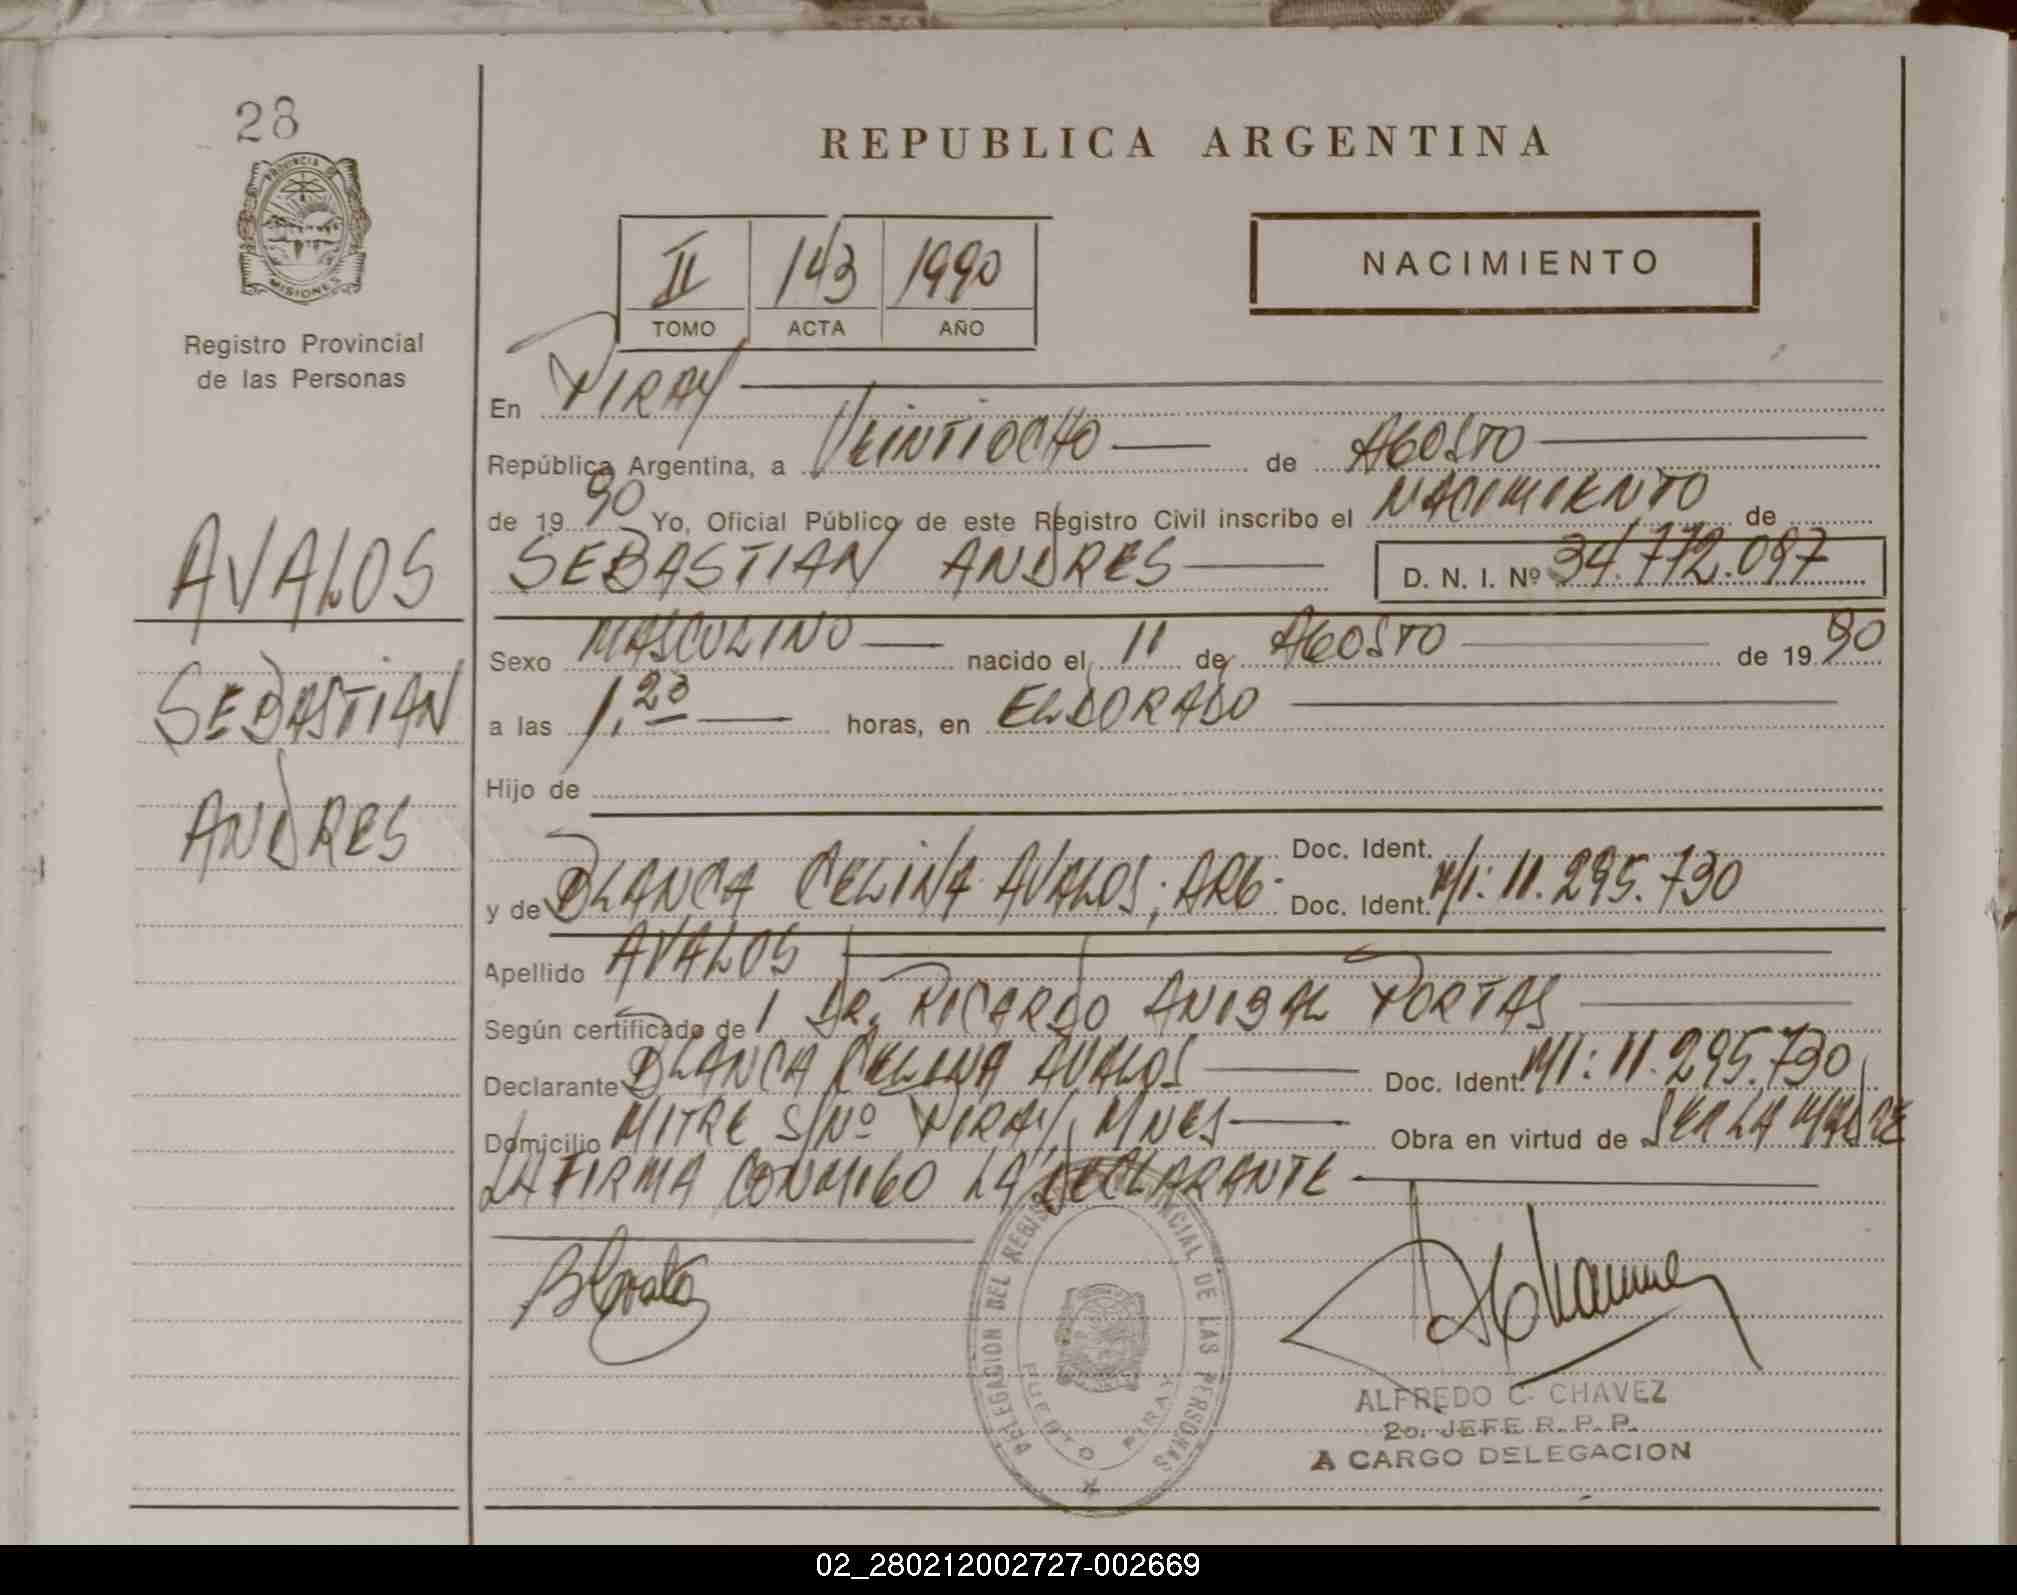 28
PROVINCIA DE
MISIONES
Registro Provincial
de las Personas
AVALOS
SEBASTIAN
ANDRES
REPUBLICA ARGENTINA
II 143 1990
TOMO ACTA AÑO
NACIMIENTO
En PIRAY
República Argentina, a VEINTIOCHO de AGOSTO
de 19 90 Yo, Oficial Público de este Registro Civil inscribo el NACIMIENTO de
SEBASTIAN ANDRES D. N. I. Nº 34.772.097
Sexo MASCULINO nacido el 11 de AGOSTO de 19 90
a las 1,23 horas, en ELDORADO
Hijo de
Doc. Ident.
y de BLANCA CELINA AVALOS; ARG. Doc. Ident. M/I: 11.295.730
Apellido AVALOS
Según certificado de DR. RICARDO ANIBAL PORTAS
Declarante BLANCA CELINA AVALOS Doc. Ident. M/I: 11.295.730
Domicilio MITRE S/Nº PIRAY, MNES Obra en virtud de SER LA MADRE
LA FIRMA CONMIGO LA DECLARANTE
DELEGACION DEL REGISTRO PROVINCIAL DE LAS PERSONAS
PUERTO PIRAY
ALFREDO C. CHAVEZ
2o. JEFE R. P. P.
A CARGO DELEGACION
02_280212002727-002669